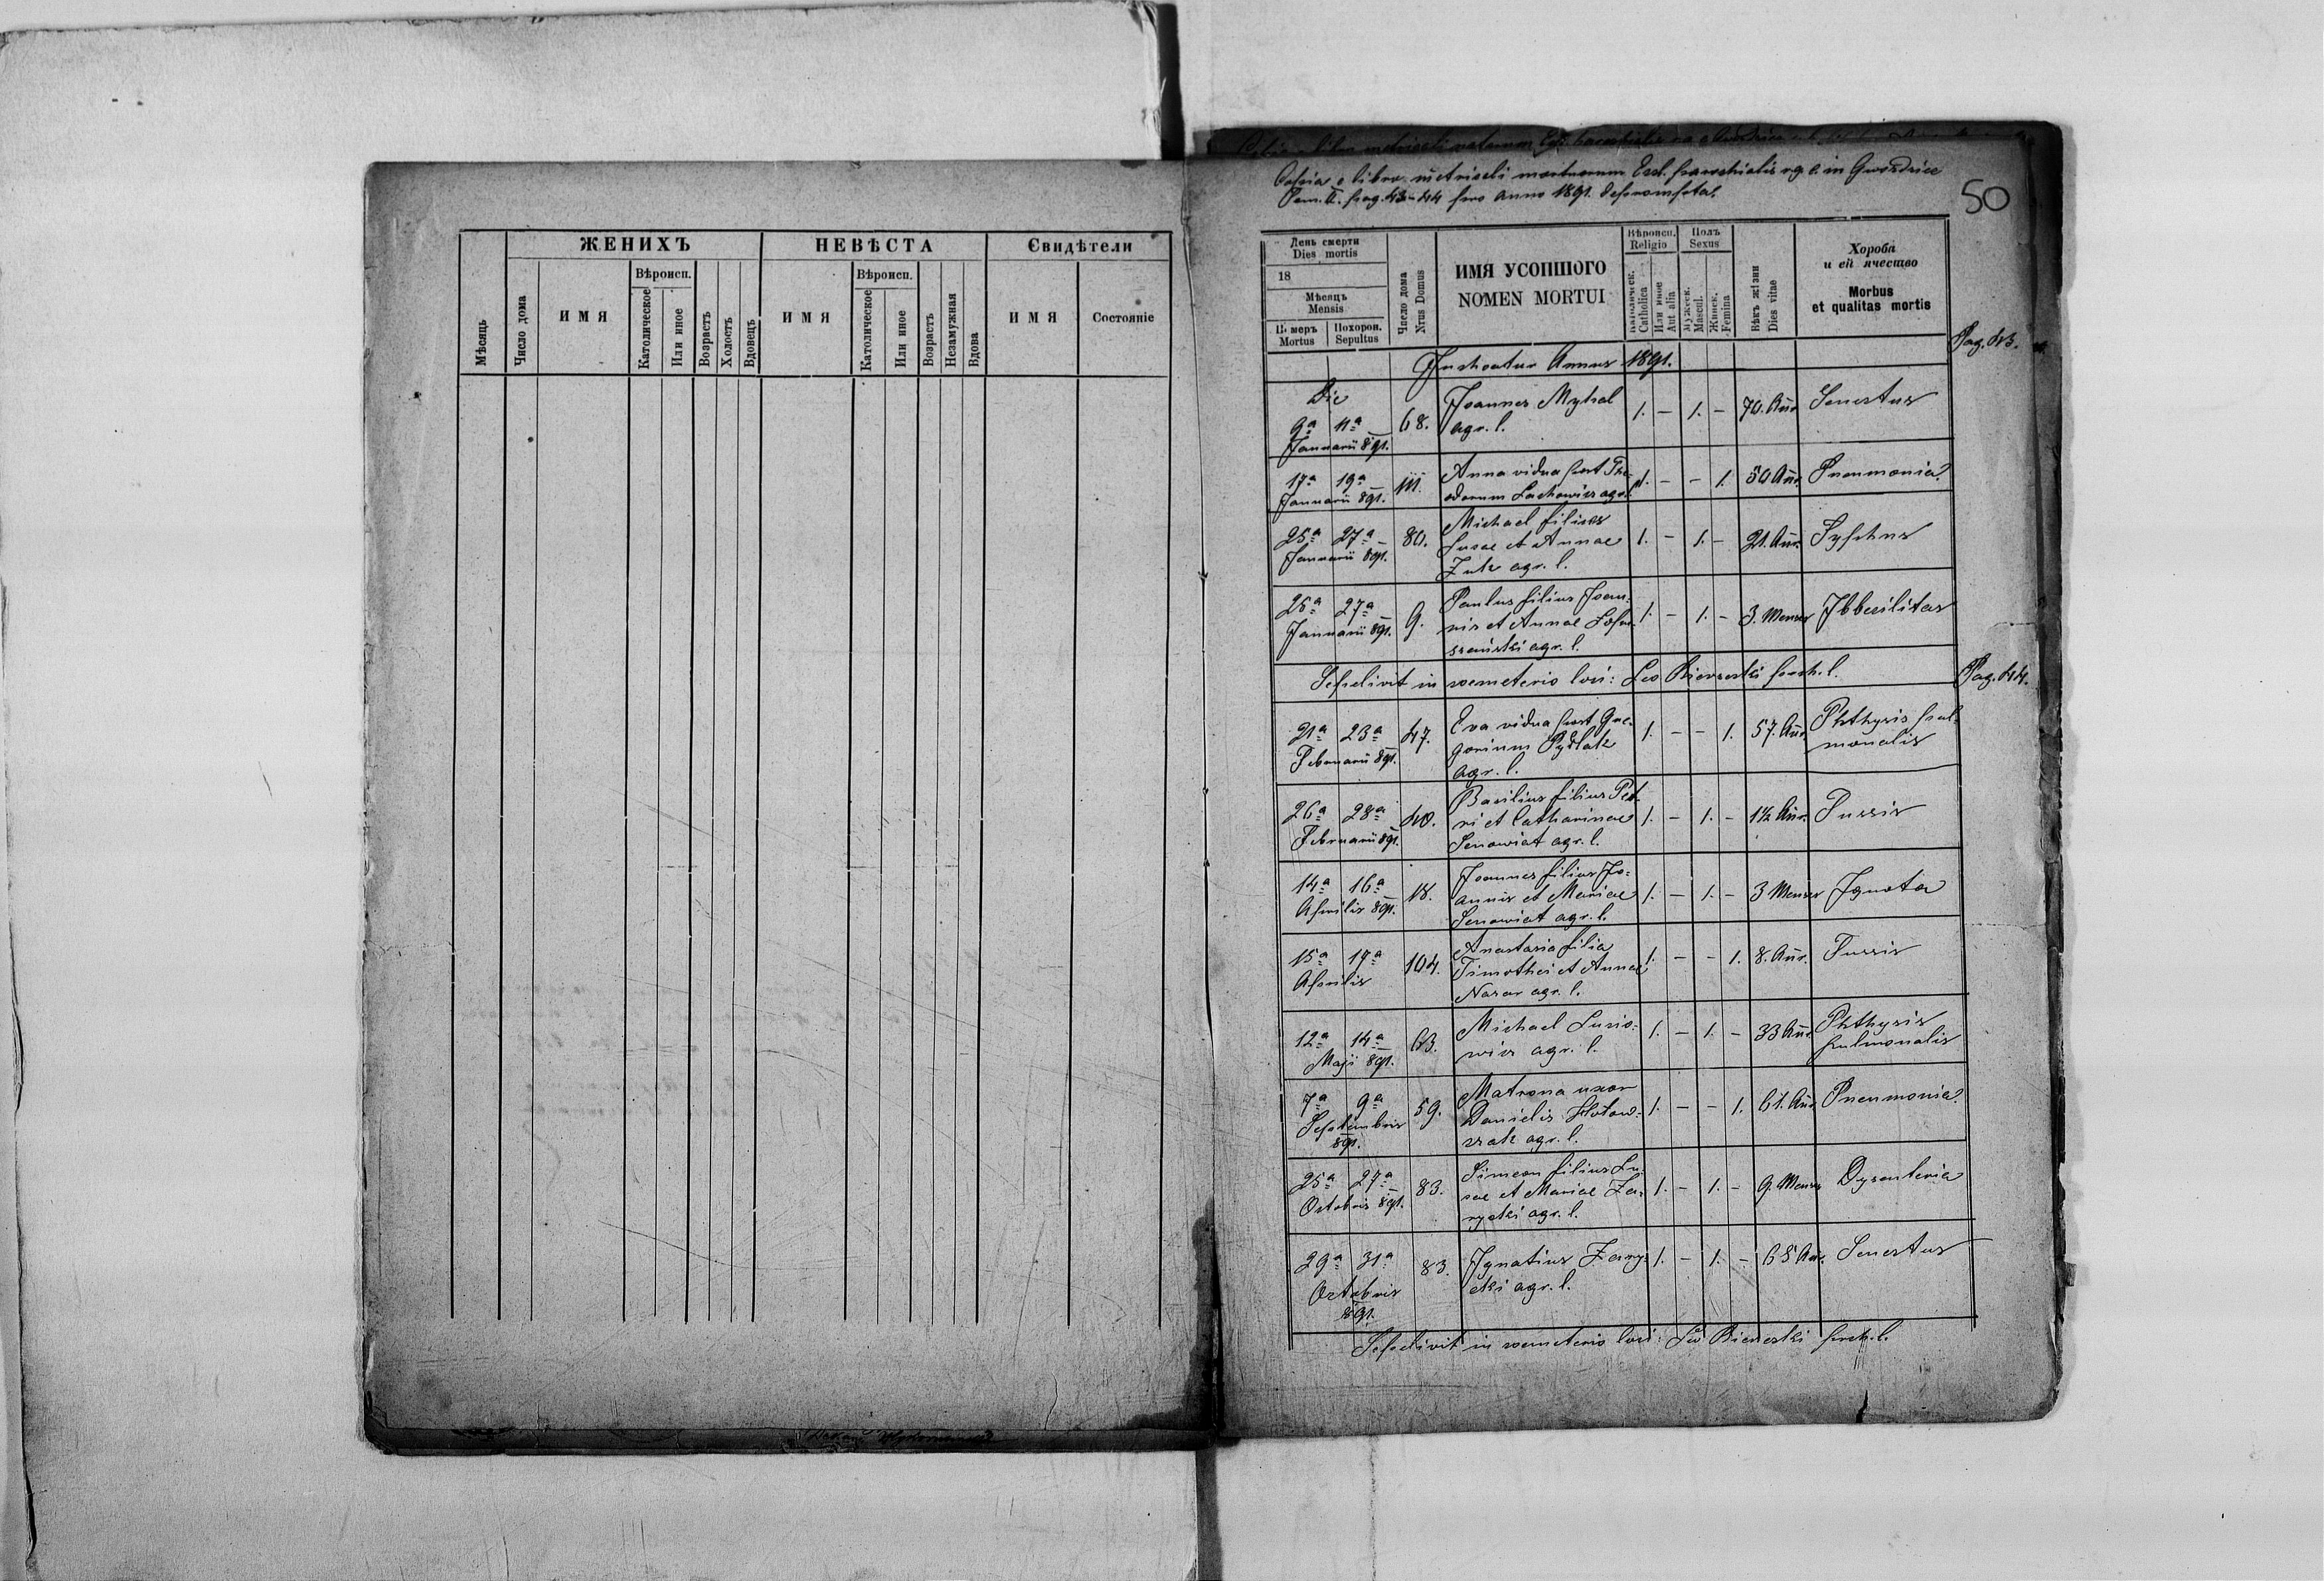 ЖЕНИХЪ
НЕВѢСТА
Свидѣтели
Мѣсяць
Число дома
ИМЯ
Вѣроисп.
Католическое
Или иное
Возрастъ
Холостъ
Вдовецъ
ИМЯ
Вѣроисп.
Католическое
Или иное
Возрастъ
Незамужная
Вдова
ИМЯ
Состояніе
Copia e libro metricali mortuorum Eccl. parochialis r. g. c. in Gwozdziec
Tom. II. pag. 43-44 pro anno 1891. deprompta.
50
День смерти
Dies mortis
18
Мѣсяць
Mensis
Mortus
Похорон.
Sepultus
Число дома
Nrus Domus
ИМЯ УСОПШОГО
NOMEN MORTUI
Вѣроисп.
Religio
Catholica
Или иное
Aut alia
Полъ
Sexus
Мужеск.
Mascul.
Женск.
Femina
Вѣкъ жізни
Dies vitae
Хороба
и ей ячество
Morbus
et qualitas mortis
Pag. 43.
Inchoatur Annus 1891.
Die
9a 11a 68. Joannes Myhal 1. – 1. – 70. Anr. Senectus
agr. l.
Januarii 891.
17a 19a 111. Anna vidua post The- 1. – – 1. 50 Anr. Pneumonia
Januarii 891. odorum Lachowicz agr. l.
Michael filius
25a 27a 80. Lucae et Annae 1. – 1. – 21. Anr. Typhus
Januarii 891. Zuk agr. l.
25a 27a 9. Paulus filius Joan- 1. – 1. – 3. Menses Ibbecilitas
Januarii 891. nis et Annae
agr. l.
Sepelivit in coemeterio loci: Leo Bierecki paroch. l.
Pag. 44.
21a 23a 47. Eva vidua post Gre- 1. – – 1. 57. Anr. Phthysis pul-
Februarii 891. gorium Pydlak monalis
agr. l.
Basilius filius Pet-
26a 28a 40. ri et Catharinae 1. – 1. – 1½ Anr. Tussis
Februarii 891. Senowiat agr. l.
14a 16a 18. Joannes filius Jo- 1. – 1. – 3 Menses Ignota
Aprilis 891. annis et Mariae
Senowiat agr. l.
15a 17a 104. Anastasia filia 1. – – 1. 8. Anr. Tussis
Aprilis Timothei et Annae
Nazar agr. l.
12a 14a 63. Michael Lucio- 1. – 1. – 33 Anr. Phthysis
Maji 891. wicz agr. l. pulmonalis
7a 9a 59. Matrona uxor 1. – – 1. 61. Anr. Pneumonia
Septembris Danielis
891. agr. l.
25a 27a 83. Simeon filius Lu- 1. – 1. – 9. Menses Dysenteria
Octobris 891. cae et Mariae Za-
rycki agr. l.
29a 31a 83. Ignatius Zary- 1. – 1. – 65 Anr. Senectus
Octobris cki agr. l.
891.
Sepelivit in coemeterio loci: Leo Bierecki paroch. l.